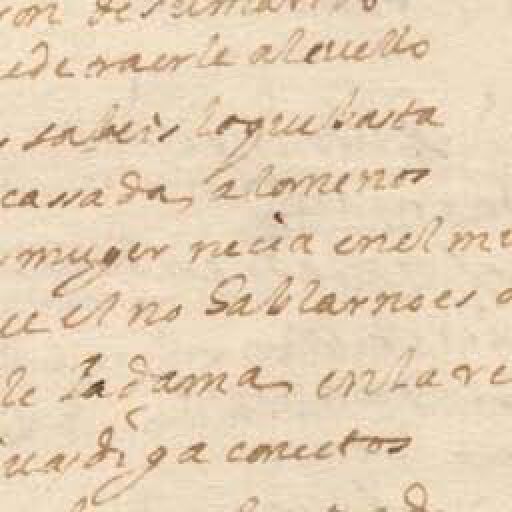 de su marido
traerle al cuello
sabeis lo que basta
cassada, a lo menos
muger necia en el m
que el no hablar no es
le la dama, en la re
diga conceptos